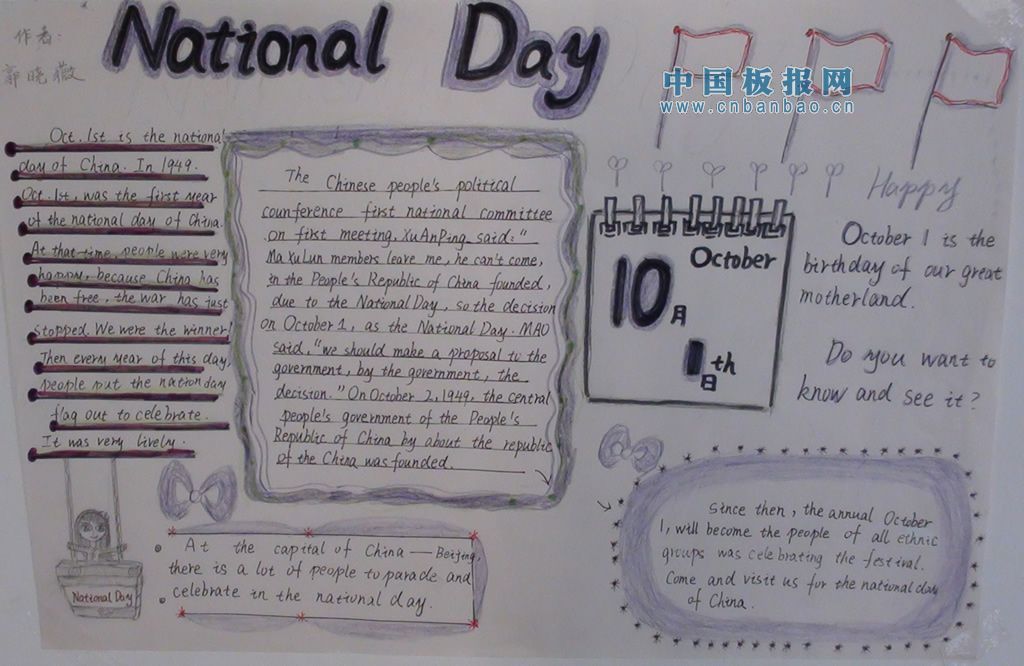 National Day
作者:
郭晓薇
中国板报网
www.cnbanbao.cn
Oct. 1st is the national
day of China. In 1949.
Oct. 1st, was the first year
of the national day of China.
At that time, people were very
happy, because China has
been free, the war has just
stopped. We were the winner!
Then every year of this day,
people put the nation day
flag out to celebrate.
It was very lively.
The Chinese people's political
counference first national committee
on first meeting, XuAnPing said:"
Ma XuLun members leave me, he can't come,
in the People's Republic of China founded,
due to the National Day, so the decision
on October 1, as the National Day. MAO
said, "we should make a proposal to the
government, by the government, the
decision." On October 2, 1949, the central
people's government of the People's
Republic of China by about the republic
of the China was founded.
October
10月
1th
日
Happy
October 1 is the
birthday of our great
motherland.
Do you want to
know and see it?
National Day
At the capital of China — Beijing,
there is a lot of people to parade and
celebrate in the national day.
Since then, the annual October
1, will become the people of all ethnic
groups was celebrating the festival.
Come and visit us for the national day
of China.